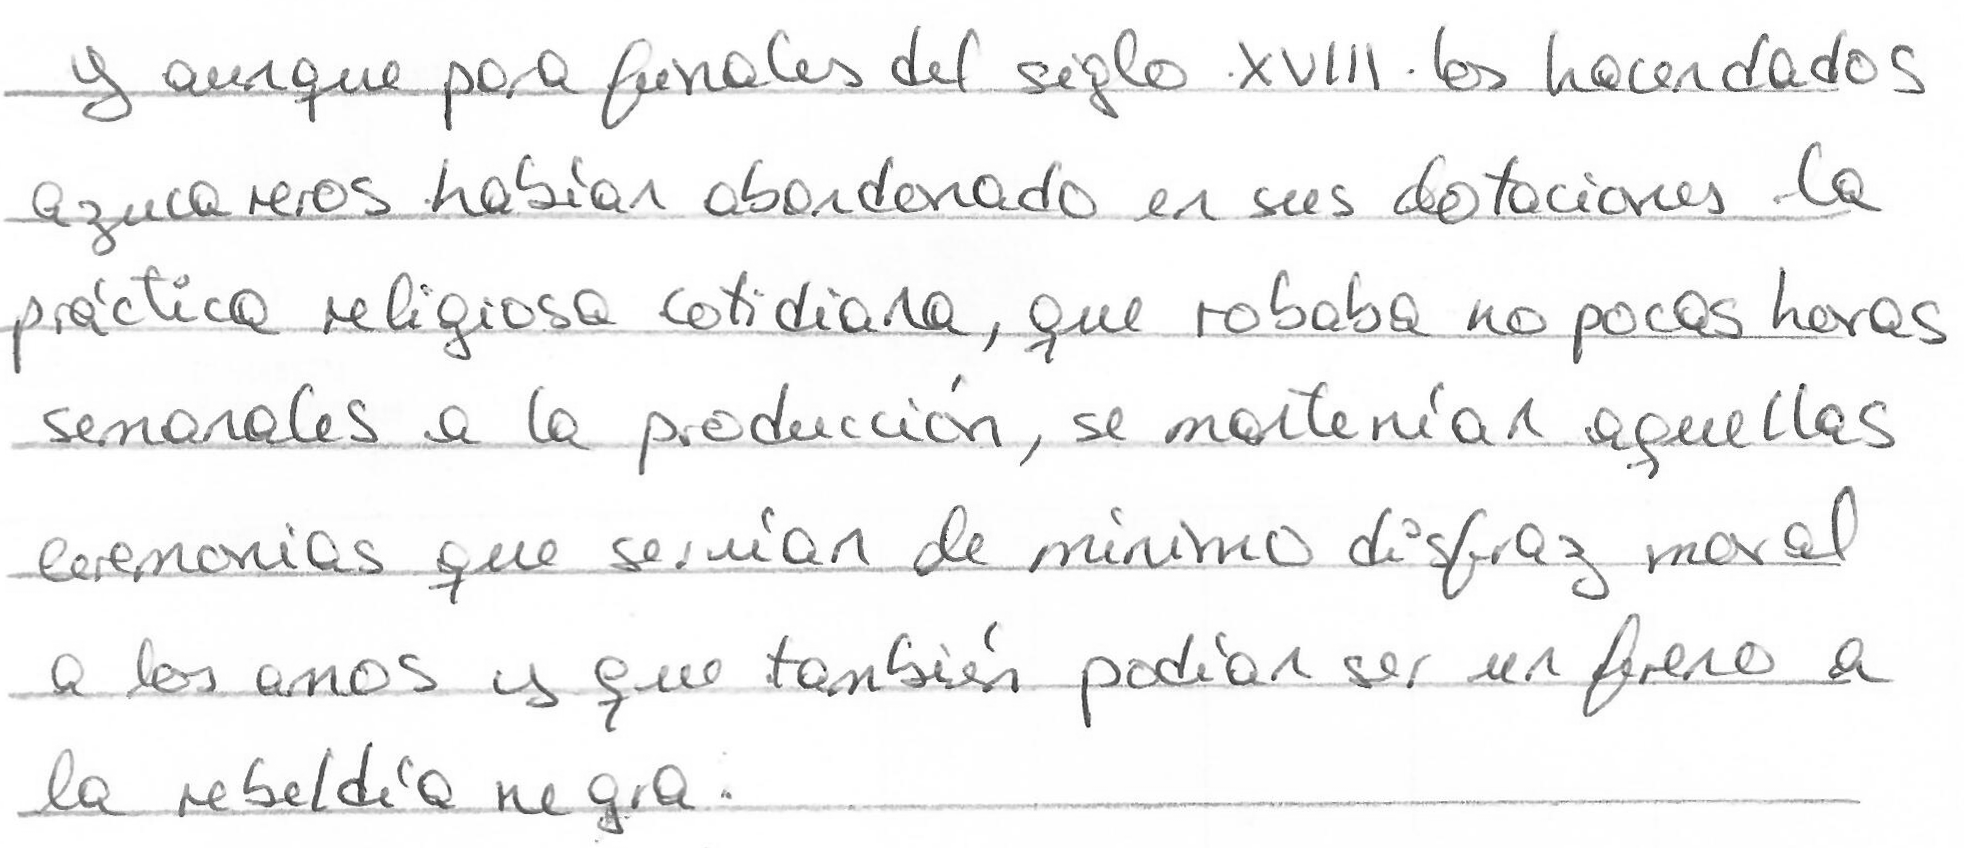 y aunque para finales del siglo XVIII los hacendados
azucareros habían abandonado en sus dotaciones la
práctica religiosa cotidiana, que robaba no pocas horas
semanales a la producción, se mantenían aquellas
ceremonias que servían de mínimo disfraz moral
a los amos y que también podían ser un freno a
la rebeldía negra.